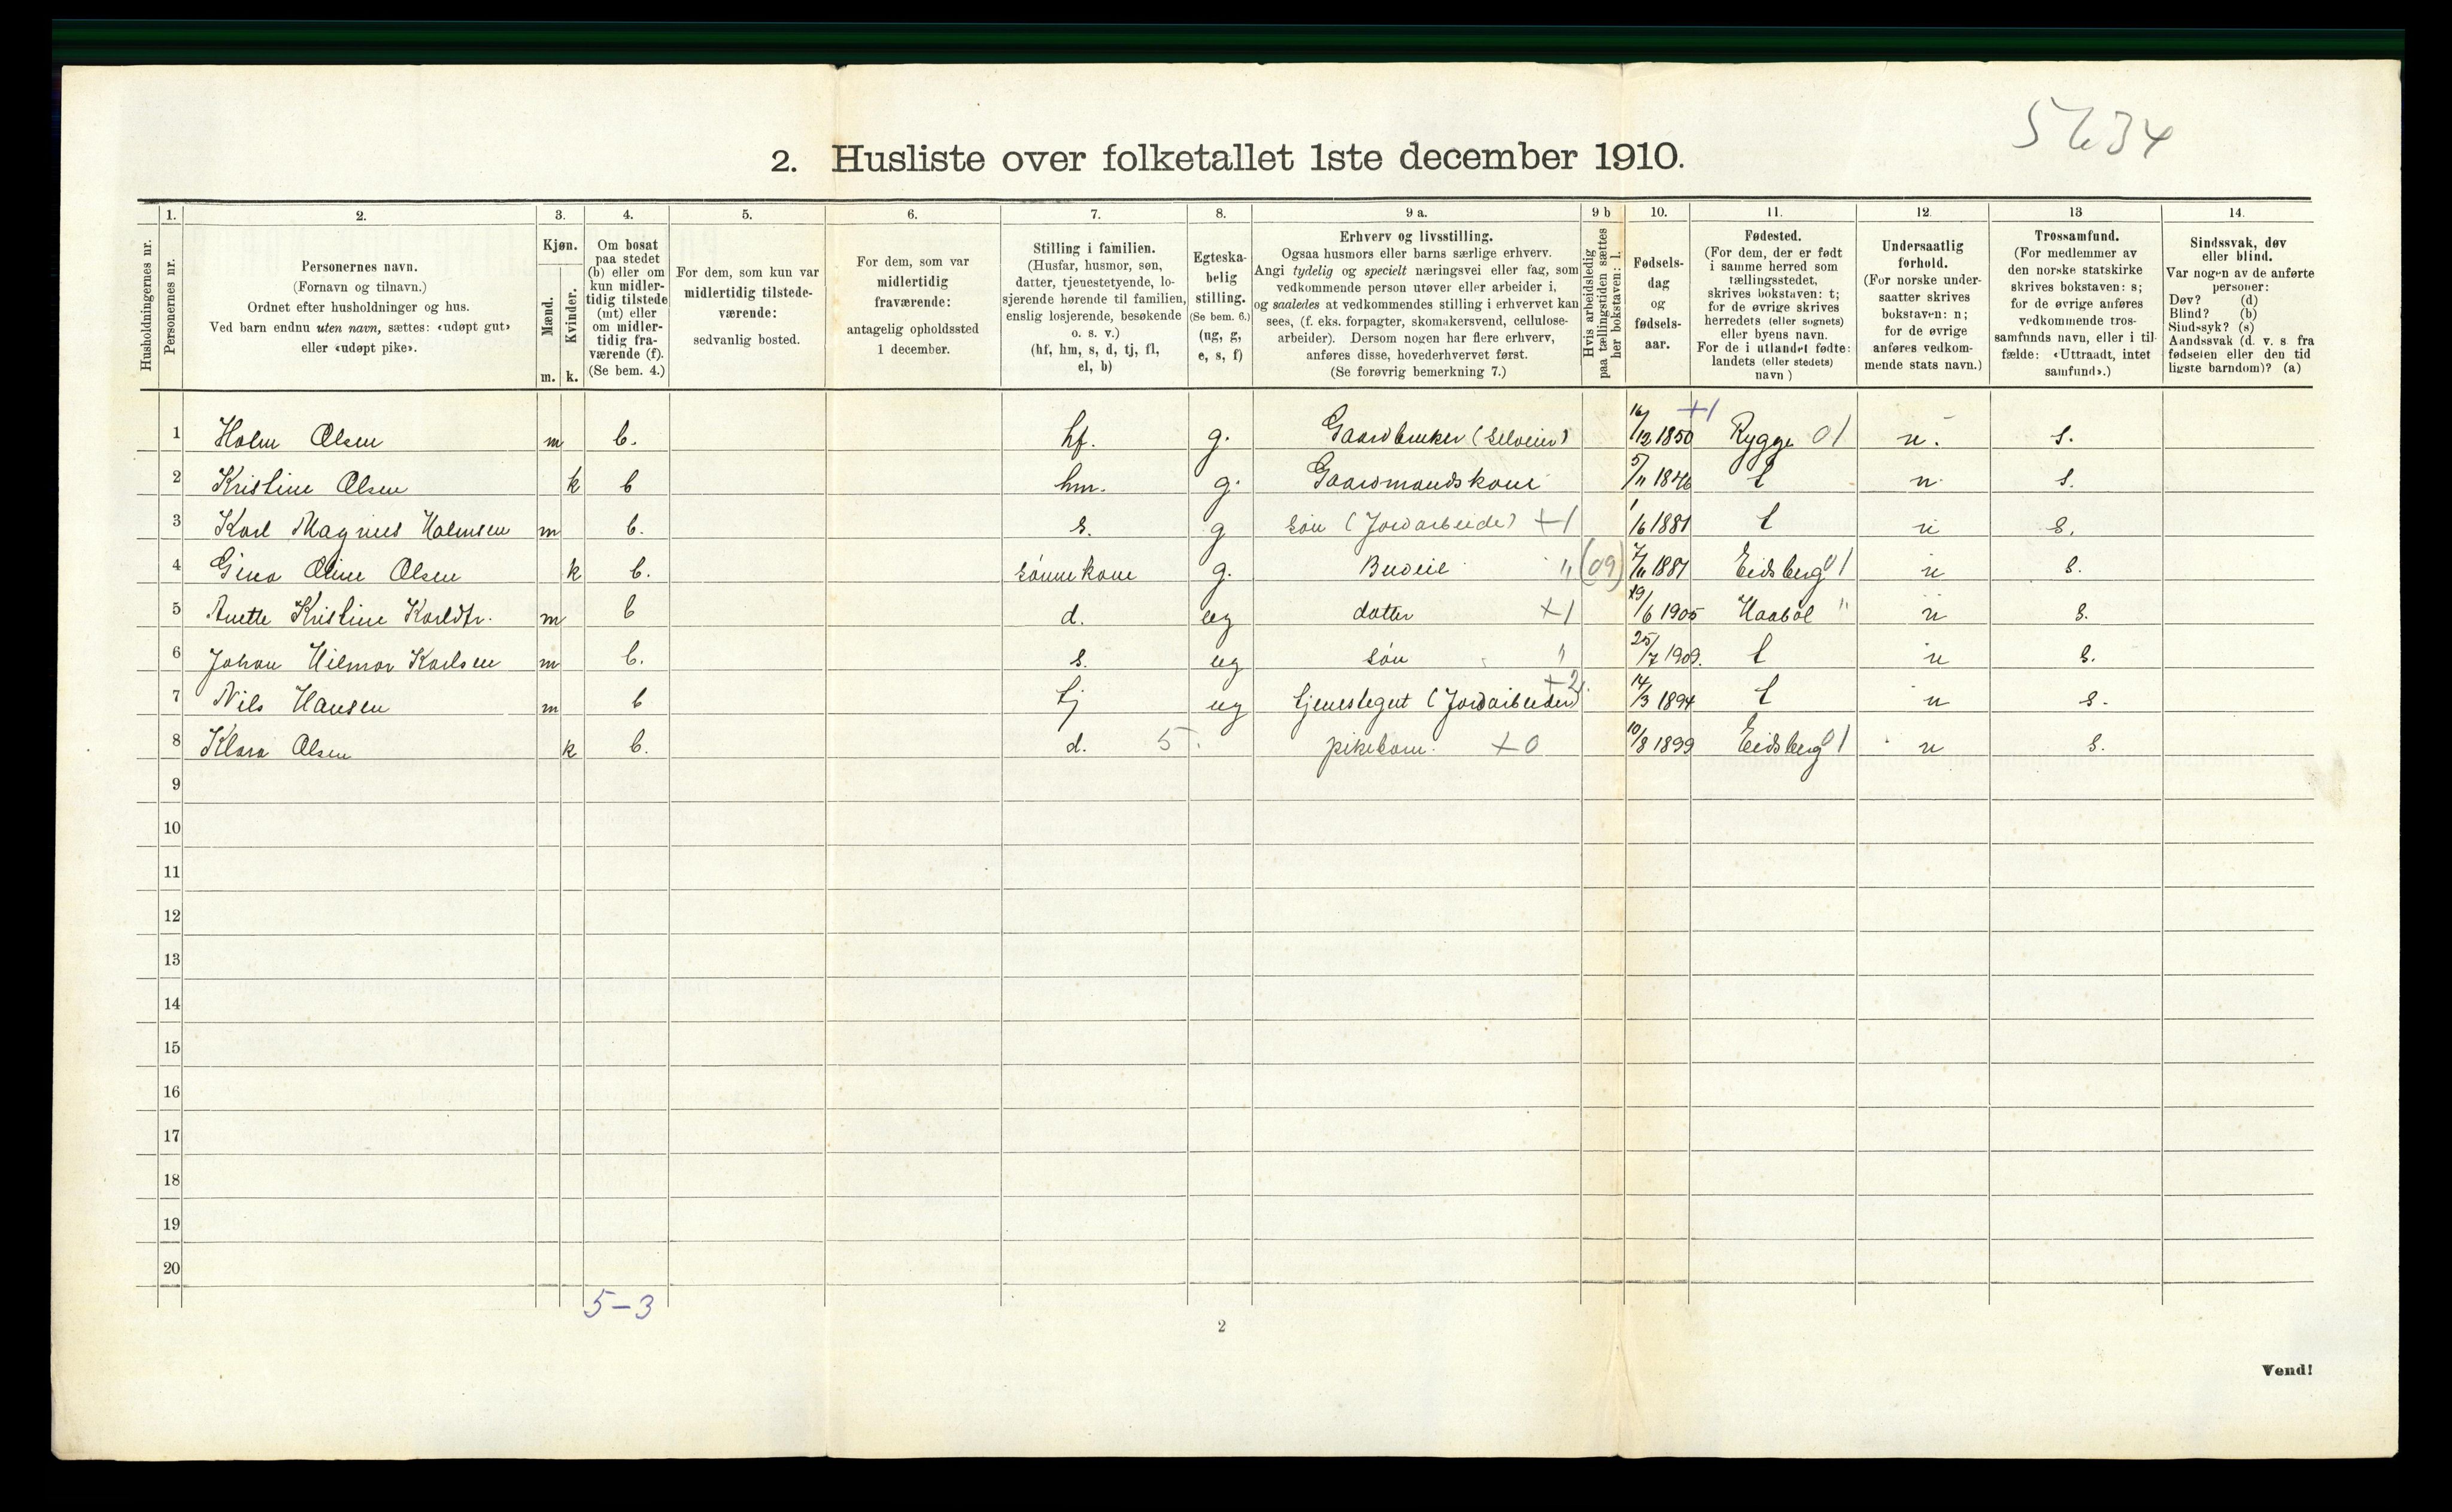 5634
2. Husliste over folketallet 1ste december 1910.
1. 2. 3. 4. 5. 6. 7. 8. 9 a. 9 b 10. 11. 12. 13 14.
Husholdningernes nr.
Personernes nr.
Personernes navn.
(Fornavn og tilnavn.)
Ordnet efter husholdninger og hus.
Ved barn endnu uten navn, sættes: «udøpt gut»
eller «udøpt pike».
Kjøn.
Mænd.
Kvinder.
m. k.
Om bosat
paa stedet
(b) eller om
kun midler-
tidig tilstede
(mt) eller
om midler-
tidig fra-
værende (f).
(Se bem. 4.)
For dem, som kun var
midlertidig tilstede-
værende:
sedvanlig bosted.
For dem, som var
midlertidig
fraværende:
antagelig opholdssted
1 december.
Stilling i familien.
(Husfar, husmor, søn,
datter, tjenestetyende, lo-
sjerende hørende til familien,
enslig losjerende, besøkende
o. s. v.)
(hf, hm, s, d, tj, fl,
el, b)
Egteska-
belig
stilling.
(Se bem. 6.)
(ug, g,
e, s, f)
Erhverv og livsstilling.
Ogsaa husmors eller barns særlige erhverv.
Angi tydelig og specielt næringsvei eller fag, som
vedkommende person utøver eller arbeider i,
og saaledes at vedkommendes stilling i erhvervet kan
sees, (f. eks. forpagter, skomakersvend, cellulose-
arbeider). Dersom nogen har flere erhverv,
anføres disse, hovederhvervet først.
(Se forøvrig bemerkning 7.)
Hvis arbeidsledig
paa tællingstiden sættes
her bokstaven: l.
Fødsels-
dag
og
fødsels-
aar.
Fødested.
(For dem, der er født
i samme herred som
tællingsstedet,
skrives bokstaven: t;
for de øvrige skrives
herredets (eller sognets)
eller byens navn.
For de i utlandet fødte:
landets (eller stedets)
navn )
Undersaatlig
forhold.
(For norske under-
saatter skrives
bokstaven: n;
for de øvrige
anføres vedkom-
mende stats navn.)
Trossamfund.
(For medlemmer av
den norske statskirke
skrives bokstaven: s;
for de øvrige anføres
vedkommende tros-
samfunds navn, eller i til-
fælde: «Uttraadt, intet
samfund».)
Sindssvak, døv
eller blind.
Var nogen av de anførte
personer:
Døv? (d)
Blind? (b)
Sindssyk? (s)
Aandssvak (d. v. s. fra
fødselen eller den tid
ligste barndom)? (a)
1 Holm Olsen m b. hf. g. Gaardbruker (Selveier) 16/12 1850 +1 Rygge 01 n. s.
2 Kristine Olsen k b hm. g. Gaardmandskone 5/11 1846 t n. s.
3 Karl Magnus Holmsen m b. s. g søn (Jordarbeide) +1 1/6 1881 t n s.
4 Gina Oline Olsen k b. sønnekone g. Budeie " (09) 7/11 1881 Eidsberg 01 n s.
5 Anette Kristine Karldtr. m b d. ug datter +1 19/6 1905 Haabøl " n s.
6 Johan Hilmar Karlsen m b. s. ug søn " 25/7 1909. t n s.
7 Nils Hansen m b tj ug tjenestegut (Jordarbeider) +2 14/3 1894 t n s.
8 Klara Olsen k b. d. 5. pikebarn. +0 10/8 1899 Eidsberg 01 n s.
9
10
11
12
13
14
15
16
17
18
19
20
5-3
2
Vend!